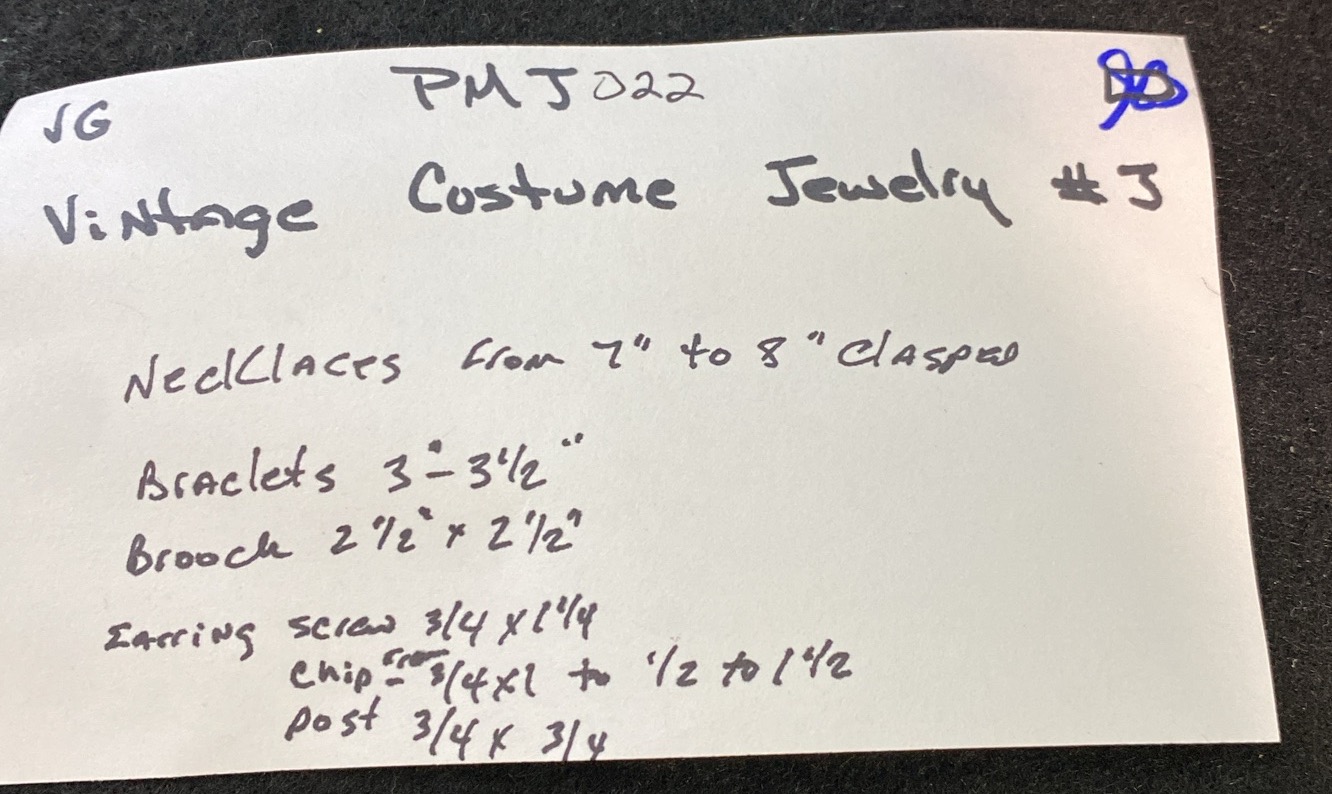 PMJ022
VG
Vintage Costume Jewelry #3
Necklaces from 7" to 8" clasped
Braclets 3" - 3 1/2"
Brooch 2 1/2" x 2 1/2"
Earring screw 3/4 x 1 1/4
chip from 3/4 x 1 to 1/2 to 1 1/2
post 3/4 x 3/4